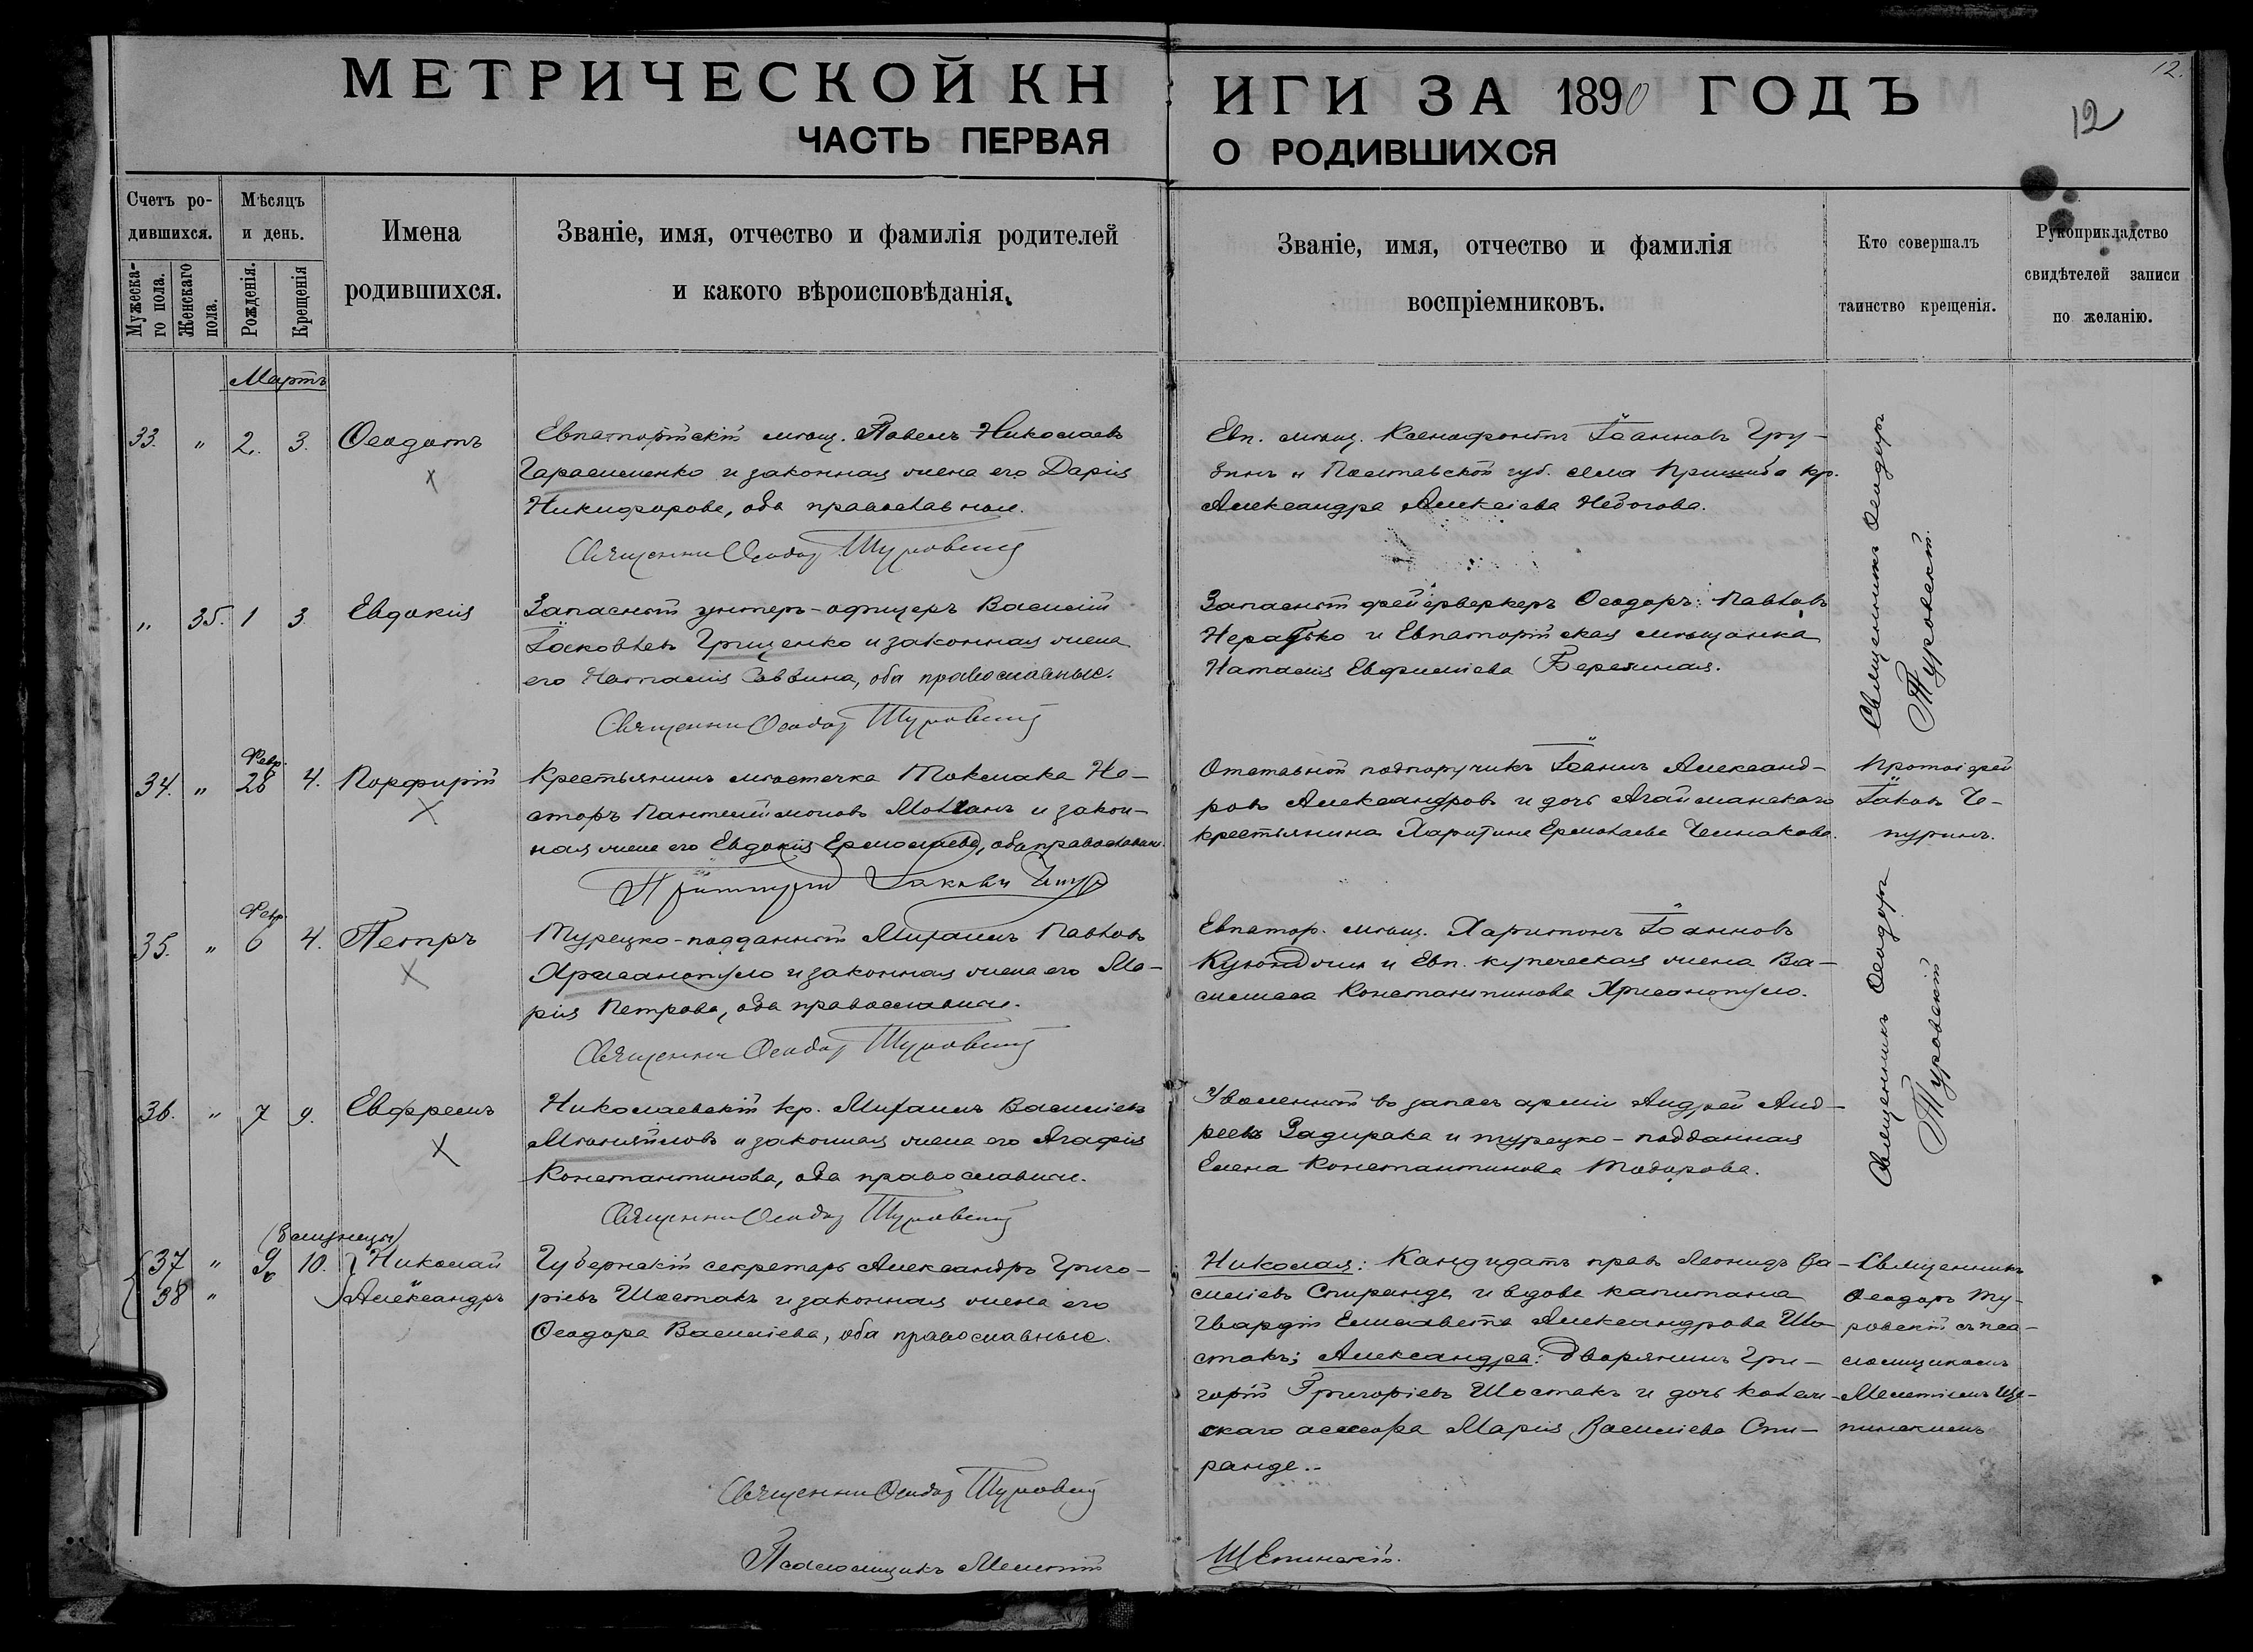 МЕТРИЧЕСКОЙ КНИГИ ЗА 1890 ГОДЪ
12.
12
ЧАСТЬ ПЕРВАЯ О РОДИВШИХСЯ
Счетъ ро-
дившихся.
Мужеска-
го пола.
Женскаго
пола.
Мѣсяцъ
и день.
Рожденія.
Крещенія
Имена
родившихся.
Званіе, имя, отчество и фамилія родителей
и какого вѣроисповѣданія.
Званіе, имя, отчество и фамилія
воспріемниковъ.
Кто совершалъ
таинство крещенія.
Рукоприкладство
свидѣтелей записи
по желанію.
Мартъ
33. " 2. 3. Ѳеодотъ
Евпаторійскій мѣщ. Павелъ Николаевъ
Гарасименко и законная жена его Дарія
Никифорова, оба православные.
Священник Ѳеодор Туровский
Евп. мѣщ. Ксенофонтъ Іоанновъ Гру-
зинъ и Полтавской губ. села Пришиба кр.
Александра Алексіева
Священникъ Ѳеодоръ
Туровскій.
" 35. 1 3. Евдокія
Запасный унтеръ-офицеръ Василій
Іаковлевъ Грищенко и законная жена
его Наталія Саввина, оба православные.
Священник Ѳеодор Туровский
Запасный фейерверкеръ Ѳеодоръ Павловъ
и Евпаторійская мѣщанка
Наталія Евфиміева Бережная.
34. " Февр. 28 4. Порфирій
Крестьянинъ мѣстечка Токмака Не-
сторъ Пантелеймоновъ и закон-
ная жена его Евдокія Ермолаева, оба православные.
Протоіерей Іаковъ
Отставной подпоручикъ Іоаннъ Александ-
ровъ Александровъ и дочь Агайманскаго
крестьянина Харитина Ермолаева
Протоіерей
Іаковъ Че-
пуринъ.
35. " Февр. 6 4. Петръ
Турецко-подданный Михаилъ Павловъ
Хрисанопуло и законная жена его Ма-
рія Петрова, оба православные.
Священник Ѳеодор Туровский
Евпатор. мѣщ. Харитонъ Іоанновъ
и Евп. купеческая жена Ва-
силиса Константинова Хрисанопуло.
Священникъ Ѳеодоръ
Туровскій
36. " 7 9. Евфремъ
Николаевскій кр. Михаилъ Василіевъ
и законная жена его Агафія
Константинова, оба православные.
Священник Ѳеодор Туровский
Уволенный въ запасъ арміи Андрей Анд-
реевъ Задирака и турецко-подданная
Елена Константинова Тодорова.
(близнецы)
37 " 9 10. Николай
38 " Александръ
Губернскій секретарь Александръ Григо-
ріевъ Шостакъ и законная жена его
Ѳеодора Василіева, оба православные.
Николая: Кандидатъ правъ Леонидъ Ва-
силіевъ Спиранде и вдова капитана
Гвардіи Елисавета Александрова Шо-
стакъ; Александра: Дворянинъ Гри-
горій Григоріевъ Шостакъ и дочь коллеж-
скаго асессора Марія Василіева Спи-
ранде.-
Священникъ
Ѳеодоръ Ту-
ровскій съ пса-
ломщикомъ
Мелетіемъ Ще-
пинскимъ
Священник Ѳеодор Туровский
Псаломщикъ Мелетій Щепинскій.